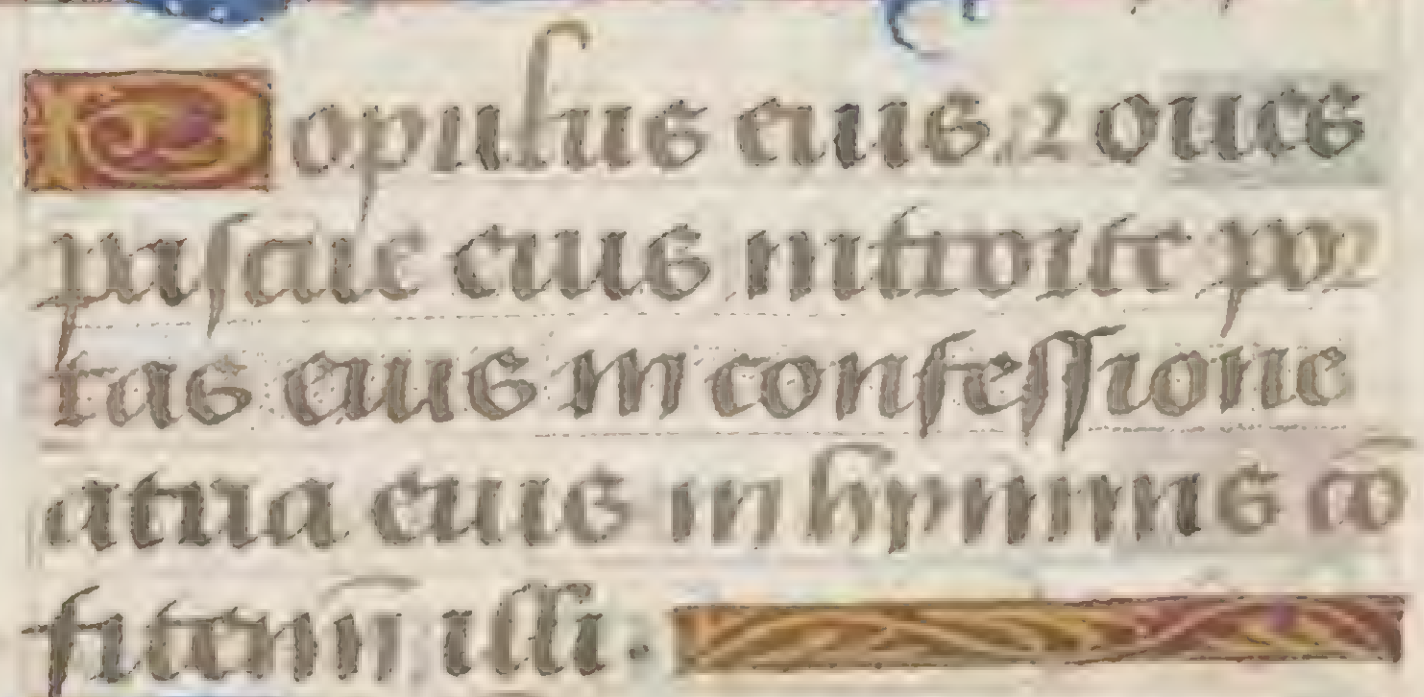 Populus eius ⁊ oues
pascuе eius introite por
tas eius in confessione
atria eius in hymnis cō
fitemī illi.